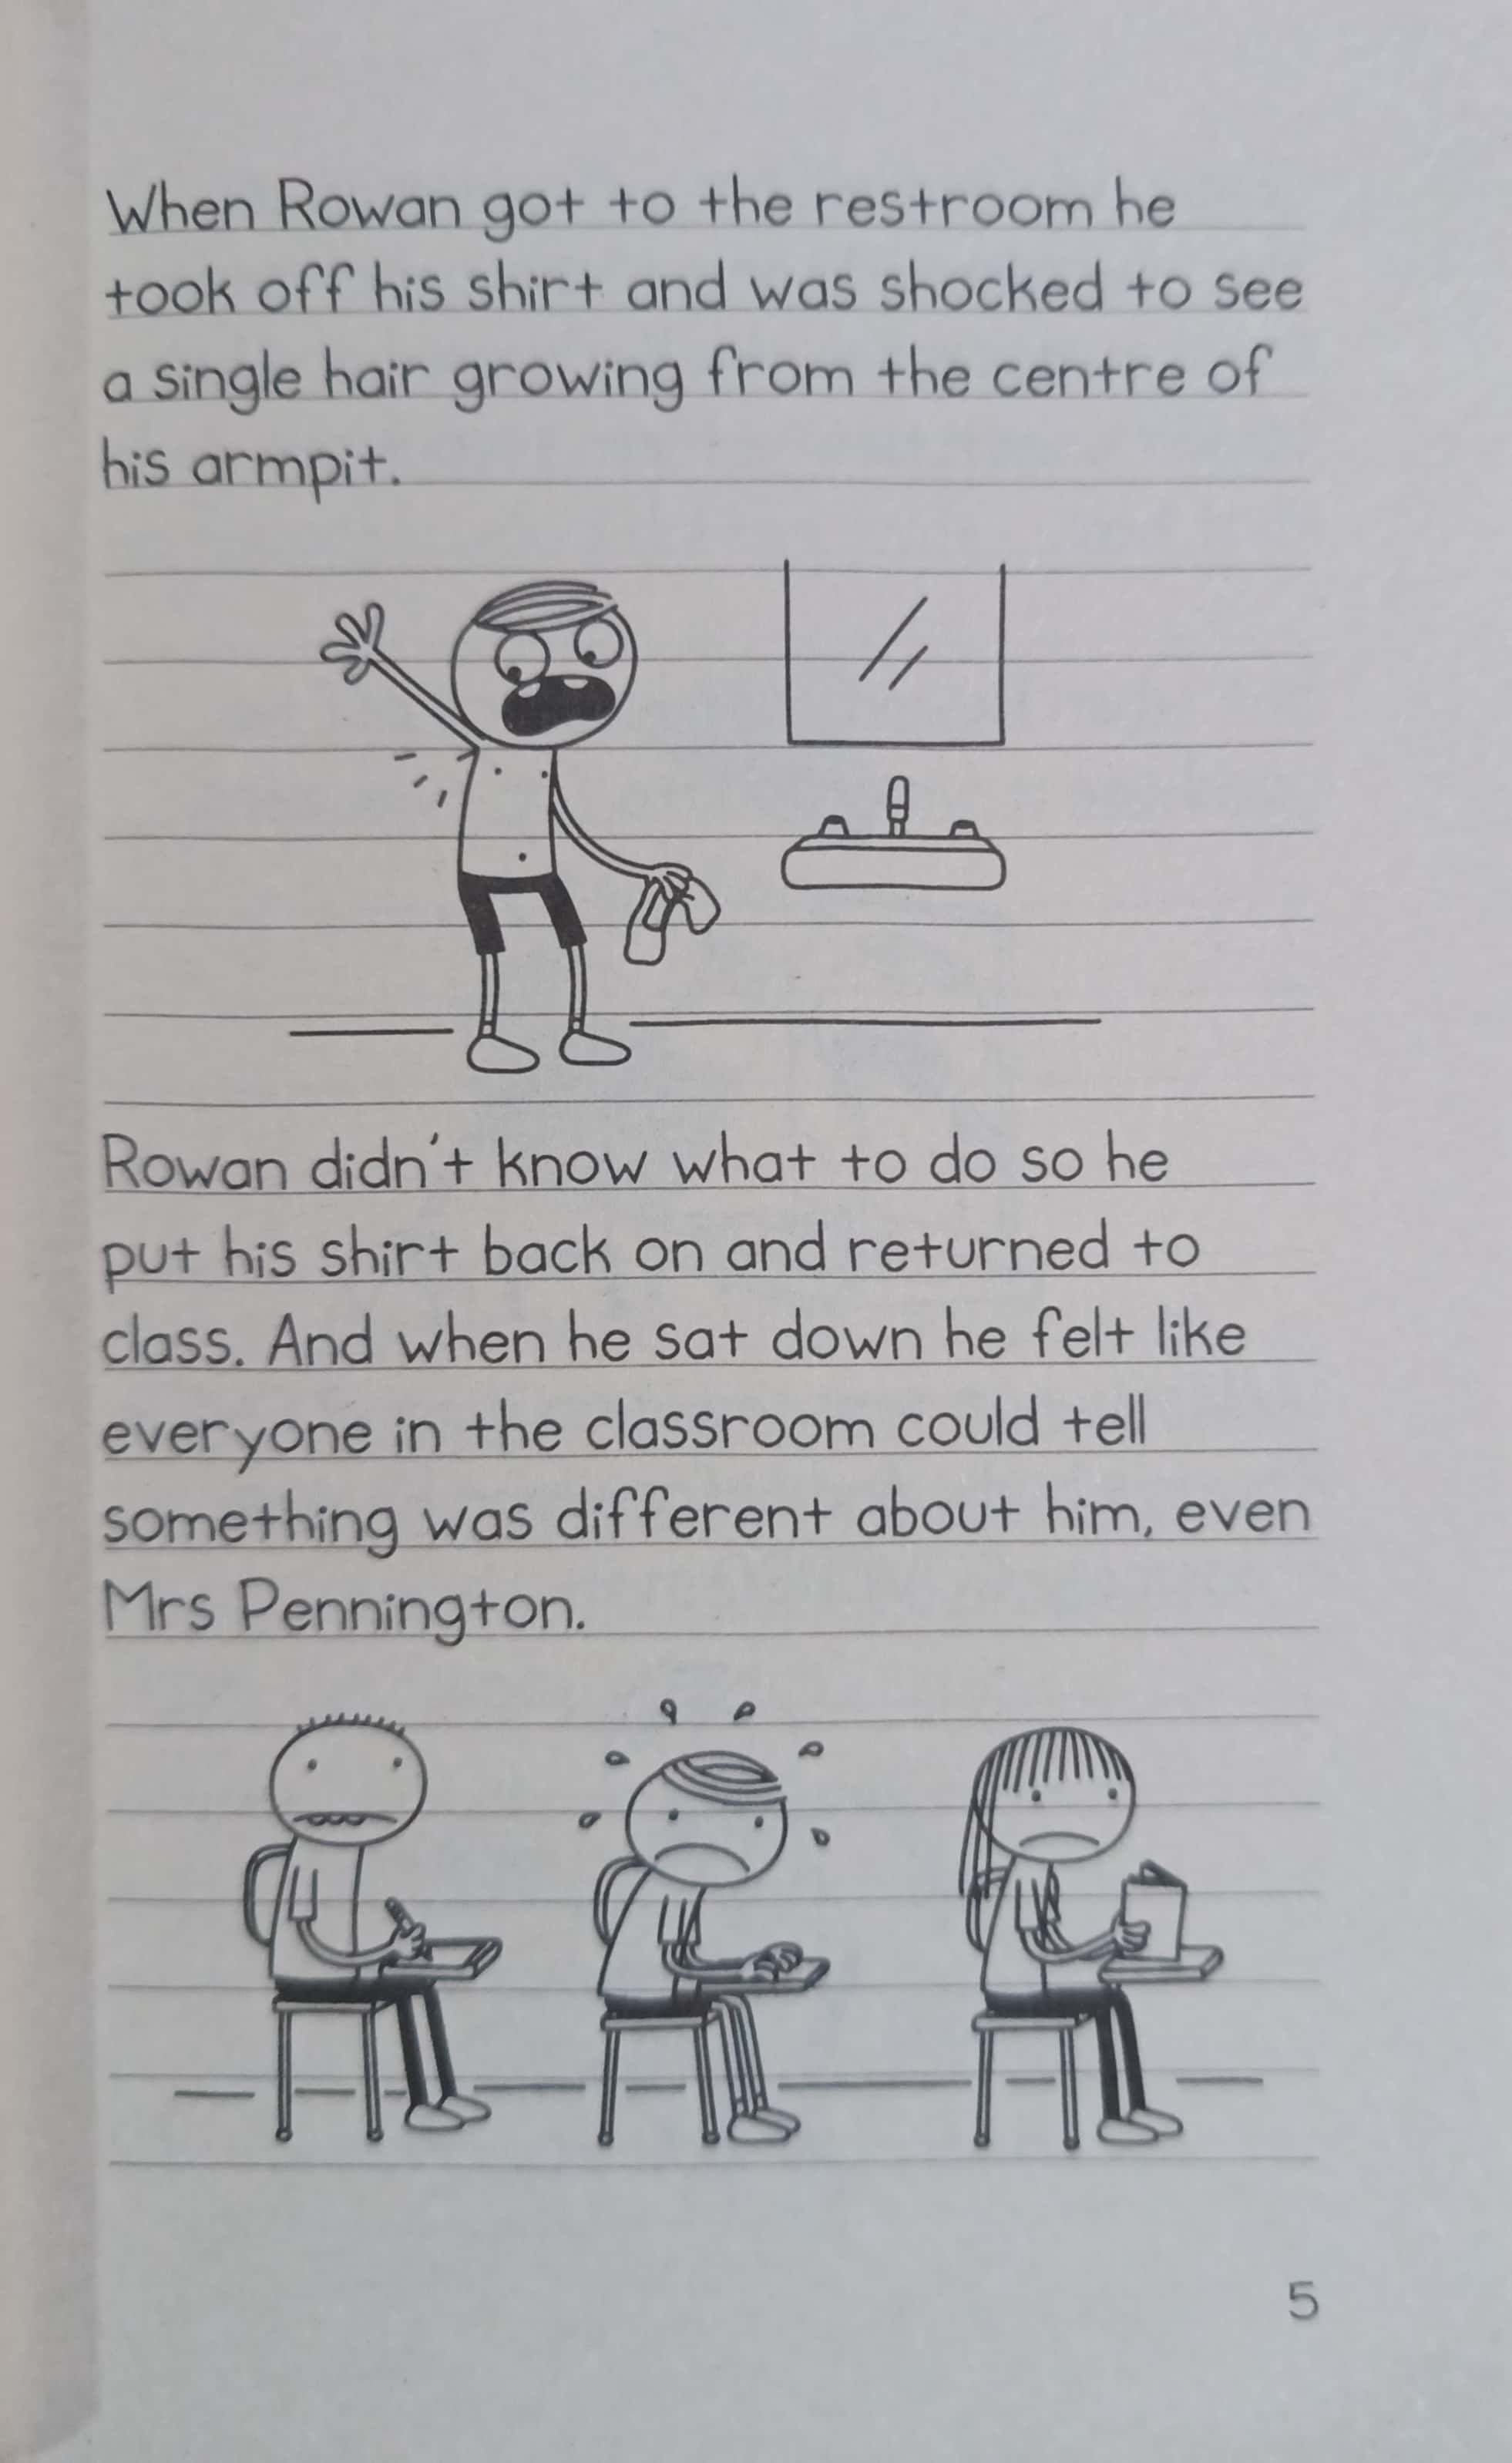 When Rowan got to the restroom he
took off his shirt and was shocked to see
a single hair growing from the centre of
his armpit.
Rowan didn't know what to do so he
put his shirt back on and returned to
class. And when he sat down he felt like
everyone in the classroom could tell
something was different about him, even
Mrs Pennington.
5